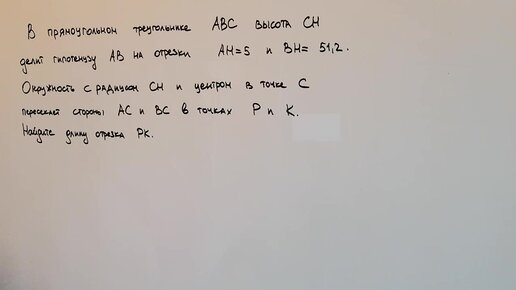 В прямоугольном треугольнике ABC высота CH
делит гипотенузу AB на отрезки AH=5 и BH= 51,2.
Окружность с радиусом CH и центром в точке C
пересекает стороны AC и BC в точках P и K.
Найдите длину отрезка PK.